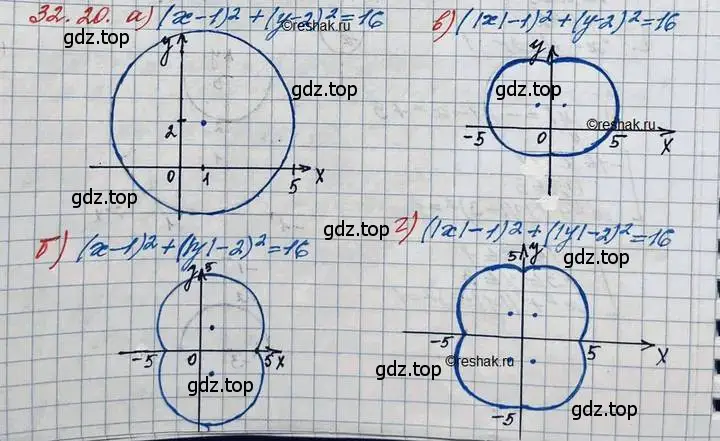 32.20. а) (x-1)² + (y-2)² = 16
©reshak.ru
y
gdz.top
2
0 1 5 x
gdz.top
в) (|x|-1)² + (y-2)² = 16
y
gdz.top
©reshak.ru
-5 0 5 x
gdz.top
б) (x-1)² + (|y|-2)² = 16
y 5
gdz.top
-5 0 5 x
gdz.top
г) (|x|-1)² + (|y|-2)² = 16
5 y
gdz.top
©reshak.ru
5 x
gdz.top
-5
gdz.top